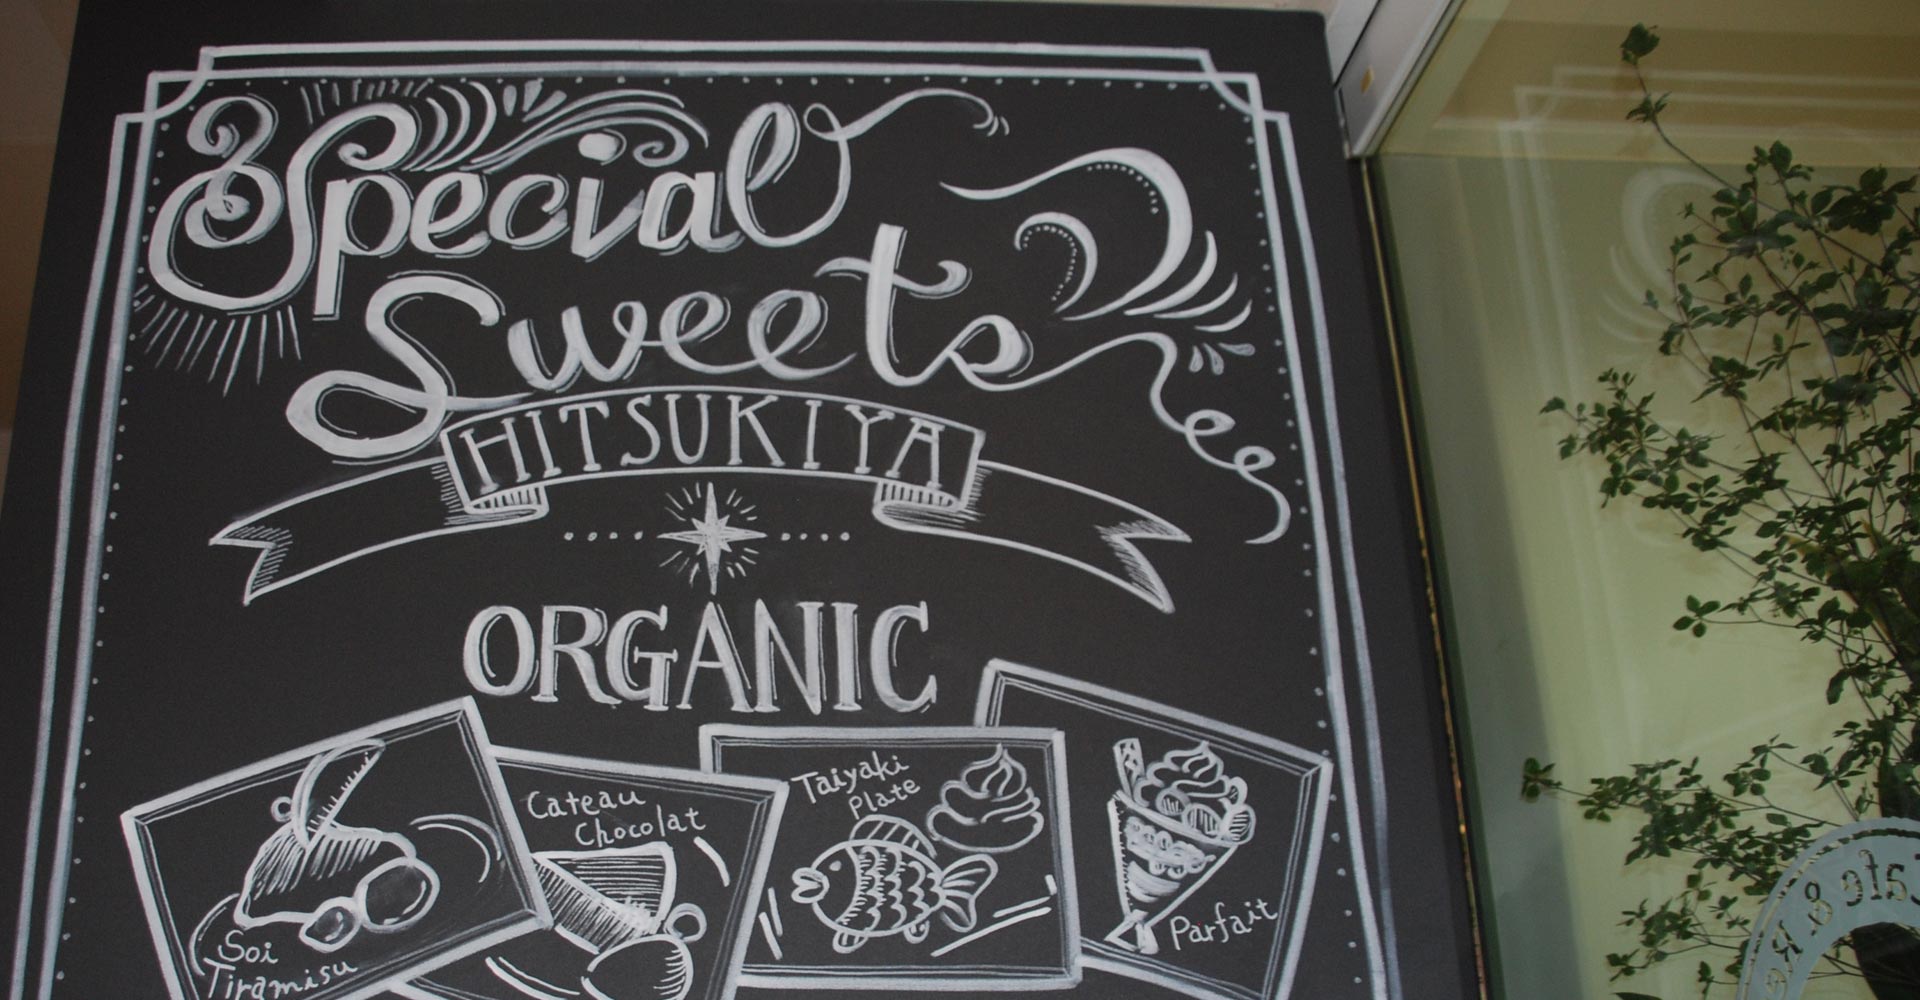 Special
Sweets
HITSUKIYA
ORGANIC
Soi
Tiramisu
Cateau
Chocolat
Taiyaki
Plate
Parfait
Cafe & Re